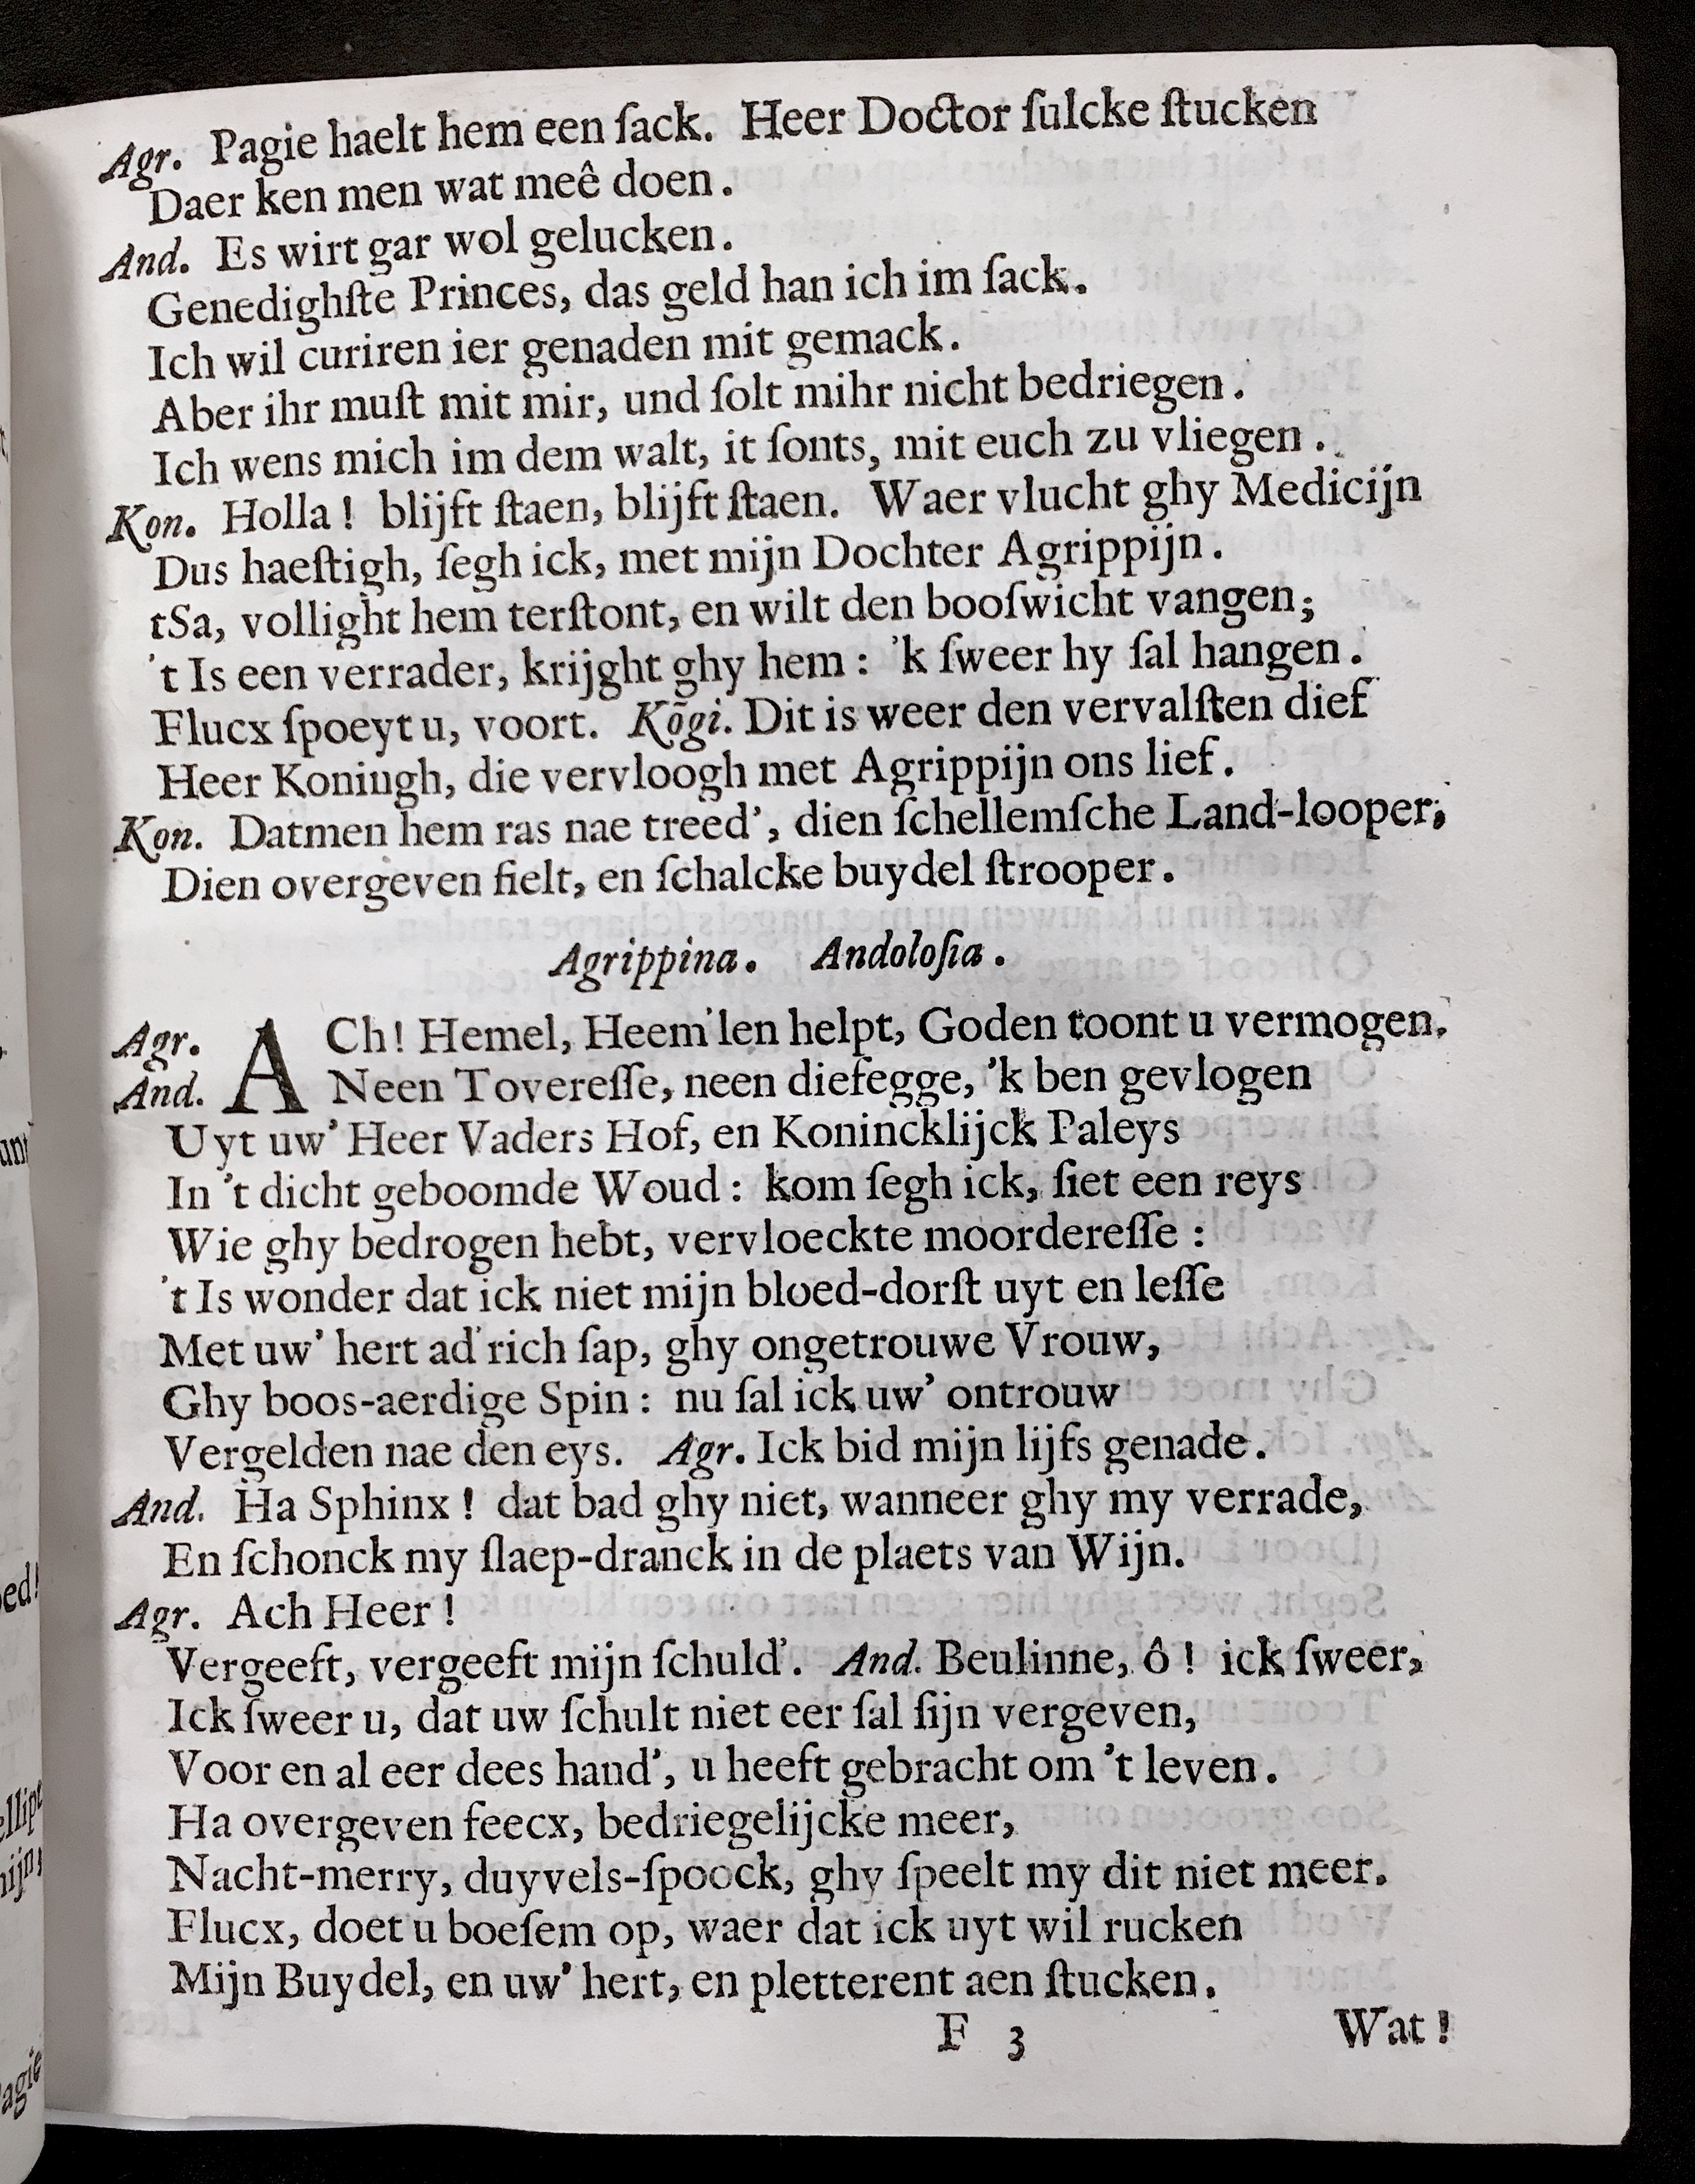 Agr. Pagie haelt hem een ſack. Heer Doctor ſulcke ſtucken
Daer ken men wat meê doen.
And. Es wirt gar wol gelucken.
Genedighſte Princes, das geld han ich im ſack.
Ich wil curiren ier genaden mit gemack.
Aber ihr muſt mit mir, und ſolt mihr nicht bedriegen.
Ich wens mich im dem walt, it ſonts, mit euch zu vliegen.
Kon. Holla! blijft ſtaen, blijft ſtaen. Waer vlucht ghy Medicijn
Dus haeſtigh, ſegh ick, met mijn Dochter Agrippijn.
tSa, vollight hem terſtont, en wilt den booſwicht vangen;
't Is een verrader, krijght ghy hem: 'k ſweer hy ſal hangen.
Flucx ſpoeyt u, voort. Kõgi. Dit is weer den vervalſten dief
Heer Koniugh, die vervloogh met Agrippijn ons lief.
Kon. Datmen hem ras nae treed', dien ſchellemſche Land-looper;
Dien overgeven fielt, en ſchalcke buydel ſtrooper.
Agrippina. Andoloſia.
Agr. ACh! Hemel, Heem'len helpt, Goden toont u vermogen.
And. Neen Tovereſſe, neen diefegge, 'k ben gevlogen
Uyt uw' Heer Vaders Hof, en Konincklijck Paleys
In 't dicht geboomde Woud: kom ſegh ick, ſiet een reys
Wie ghy bedrogen hebt, vervloeckte moordereſſe:
't Is wonder dat ick niet mijn bloed-dorſt uyt en leſſe
Met uw' hert ad'rich ſap, ghy ongetrouwe Vrouw,
Ghy boos-aerdige Spin: nu ſal ick uw' ontrouw
Vergelden nae den eys. Agr. Ick bid mijn lijfs genade.
And. Ha Sphinx! dat bad ghy niet, wanneer ghy my verrade,
En ſchonck my ſlaep-dranck in de plaets van Wijn.
Agr. Ach Heer!
Vergeeft, vergeeft mijn ſchuld'. And. Beulinne, ô! ick ſweer,
Ick ſweer u, dat uw ſchult niet eer ſal ſijn vergeven,
Voor en al eer dees hand', u heeft gebracht om 't leven.
Ha overgeven feecx, bedriegelijcke meer,
Nacht-merry, duyvels-ſpoock, ghy ſpeelt my dit niet meer.
Flucx, doet u boeſem op, waer dat ick uyt wil rucken
Mijn Buydel, en uw' hert, en pletterent aen ſtucken.
F 3 Wat!